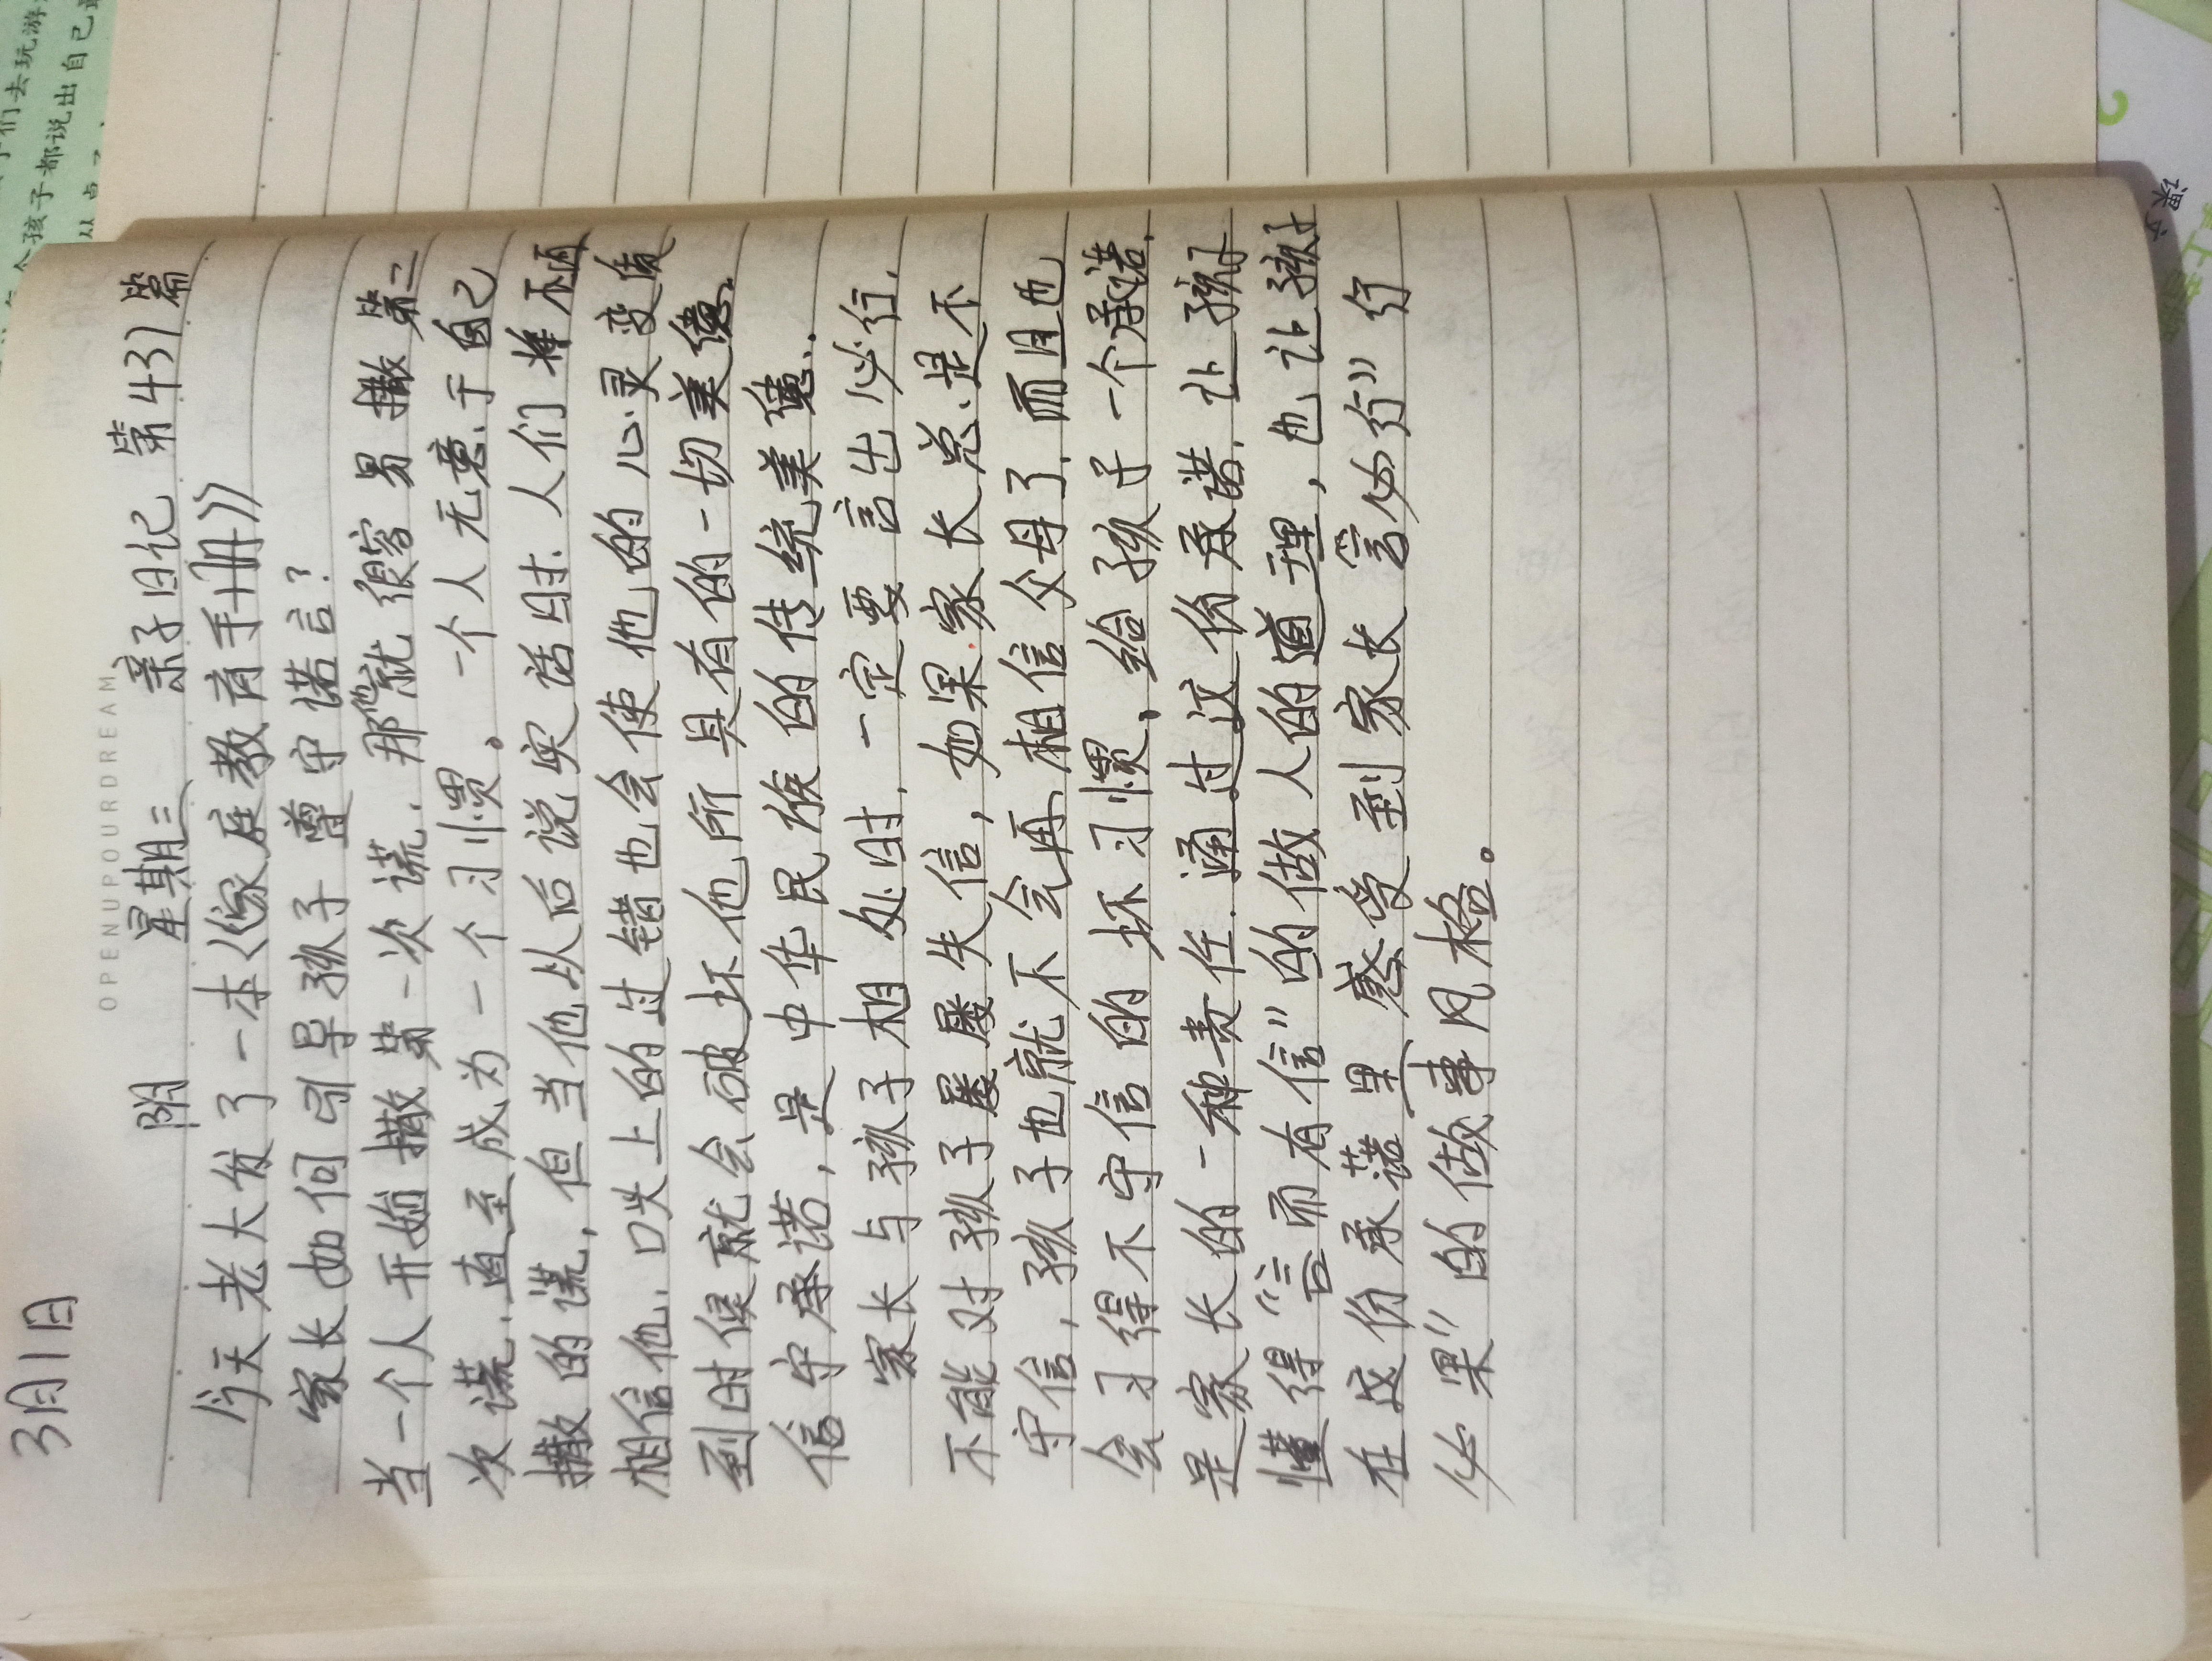 3月1日
OPENUPOURDREAM
阴 星期三 亲子日记 第431篇
今天老大发了一本《家庭教育手册》
家长如何引导孩子遵守诺言?
当一个人开始撒第一次谎,那他就很容易撒第二
次谎,直至成为一个习惯。一个人无意于自己
撒的谎,但当他从后说实话时,人们将不再
相信他,口头上的过错也会使他的心灵变质
到时候就会破坏他所具有的一切美德,
信守承诺,是中华民族的传统美德,.
家长与孩子相处时,一定要言出必行,
不能对孩子屡屡失信,如果家长总是不
守信,孩子也就不会再相信父母了,而且也
会习得不守信的坏习惯,给孩子一个承诺,
是家长的一种责任,通过这份承诺,让孩子
懂得“言而有信”的做人的道理,也让孩子
在这份承诺里,感受到家长“言必行”行
必果”的做事风格。
们去玩游
个孩子都说出自己
课